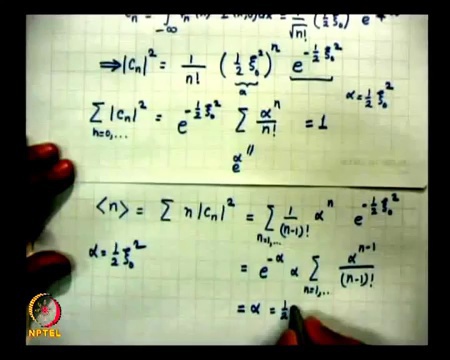 Cₙ = ∫₋∞ = 1/√n! (½ ξ₀²) e
⟹ |Cₙ|² = 1/n! (½ ξ₀²)ⁿ e^(-½ ξ₀²)
α α = ½ ξ₀²
Σ_{n=0,...} |Cₙ|² = e^(-½ ξ₀²) Σ αⁿ/n! = 1
e^α
⟨n⟩ = Σ n |Cₙ|² = Σ_{n=1,...} 1/(n-1)! αⁿ e^(-½ ξ₀²)
α = ½ ξ₀²
= e^(-α) α Σ_{n=1,...} α^(n-1)/(n-1)!
= α = ½
NPTEL